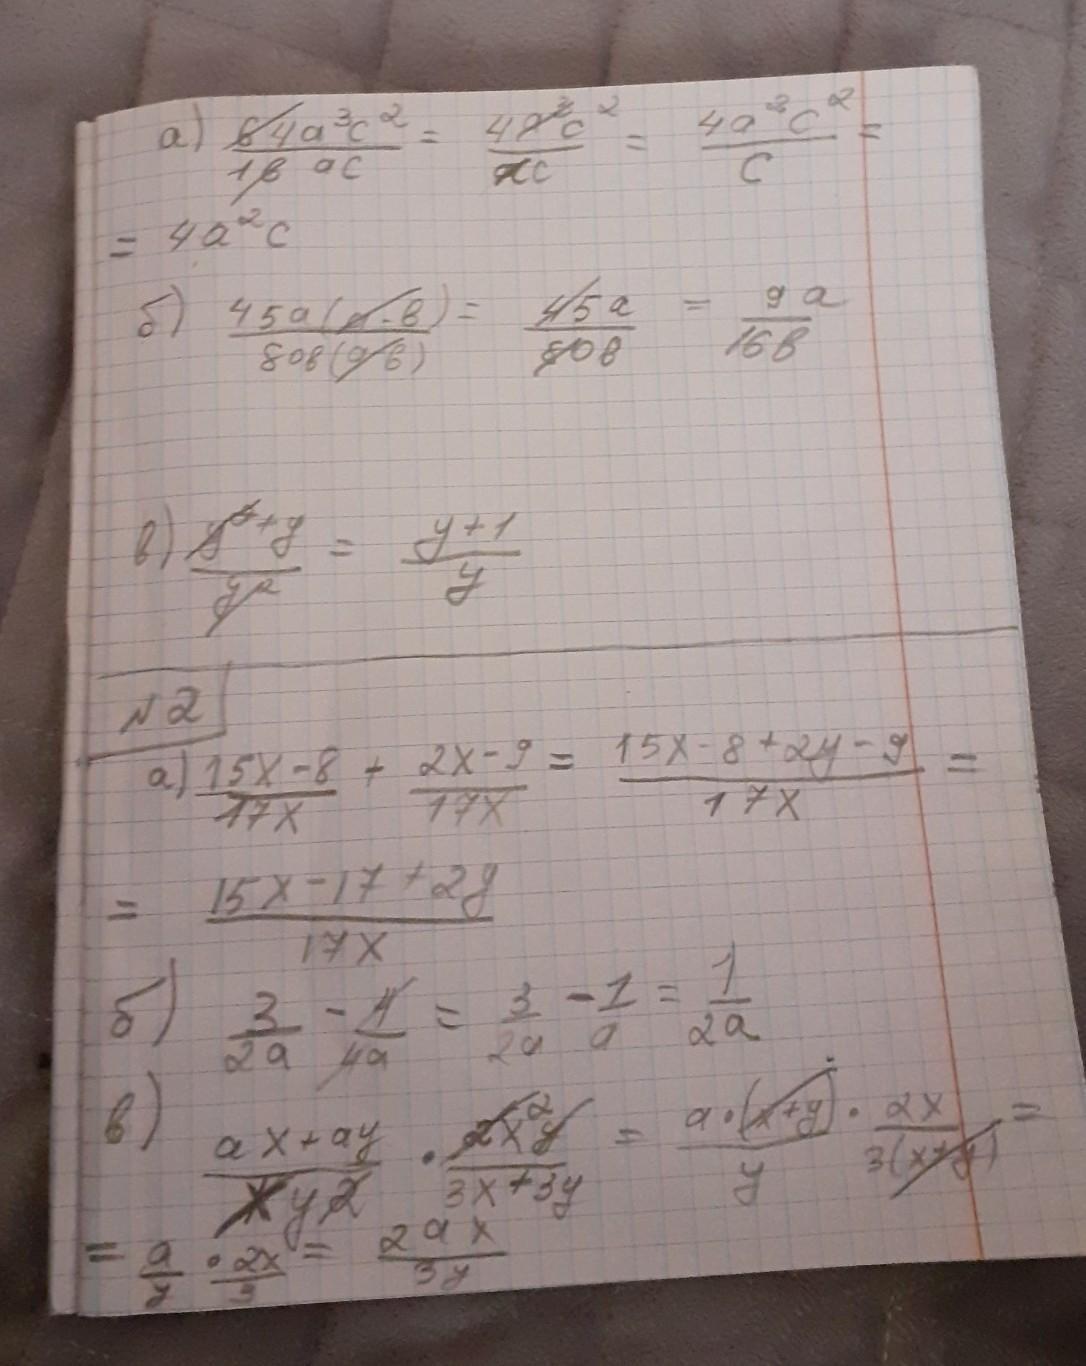 а) 64a³c²/16 ac = 4a³c²/ac = 4a³c²/c =
= 4a²c
б) 45a(a-в)/80в(a-в) = 45a/80в = 9a/16в
в) y²+y/y² = y+1/y
№2
а) 15x-8/17x + 2x-9/17x = 15x-8+2y-9/17x =
= 15x-17+2y/17x
б) 3/2a - 4/4a = 3/2a - 1/a = 1/2a
в) ax+ay/xy2 · 2x²y/3x+3y = a·(x+y)/y · 2x/3(x+y) =
= a/y · 2x/3 = 2ax/3y